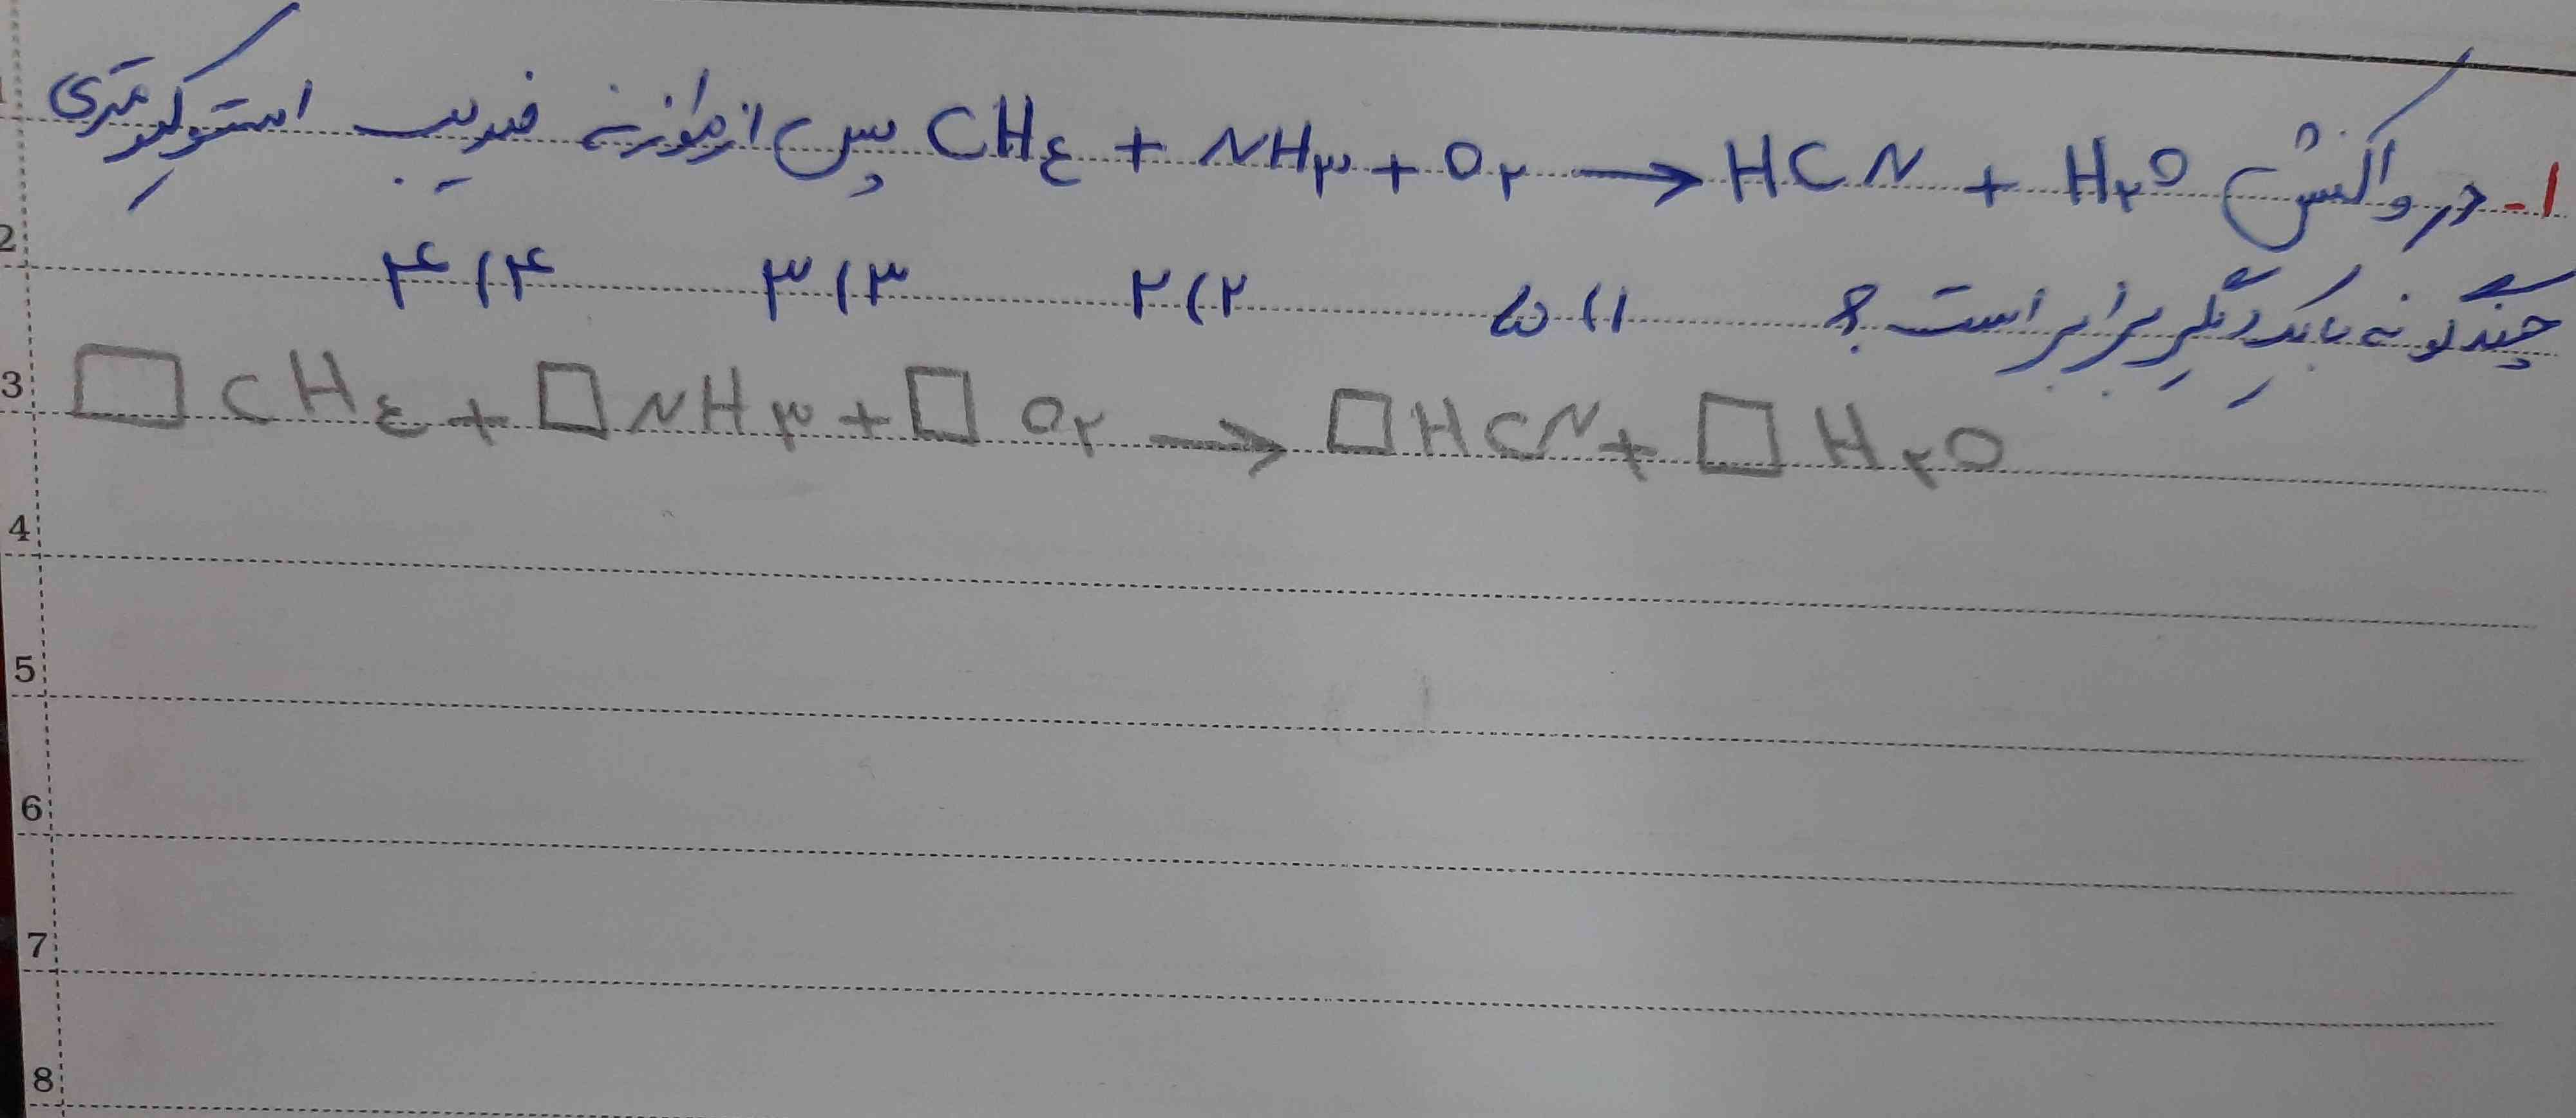 ۱- در واکنش CH۴ + NH۳ + O۲ → HCN + H۲O پس از موازنه ضریب استوکیومتری
چندگونه با یکدیگر برابر است؟ ۱) ۵ ۲) ۲ ۳) ۳ ۴) ۴
□ CH۴ + □ NH۳ + □ O۲ → □ HCN + □ H۲O
1
2
3
4
5
6
7
8